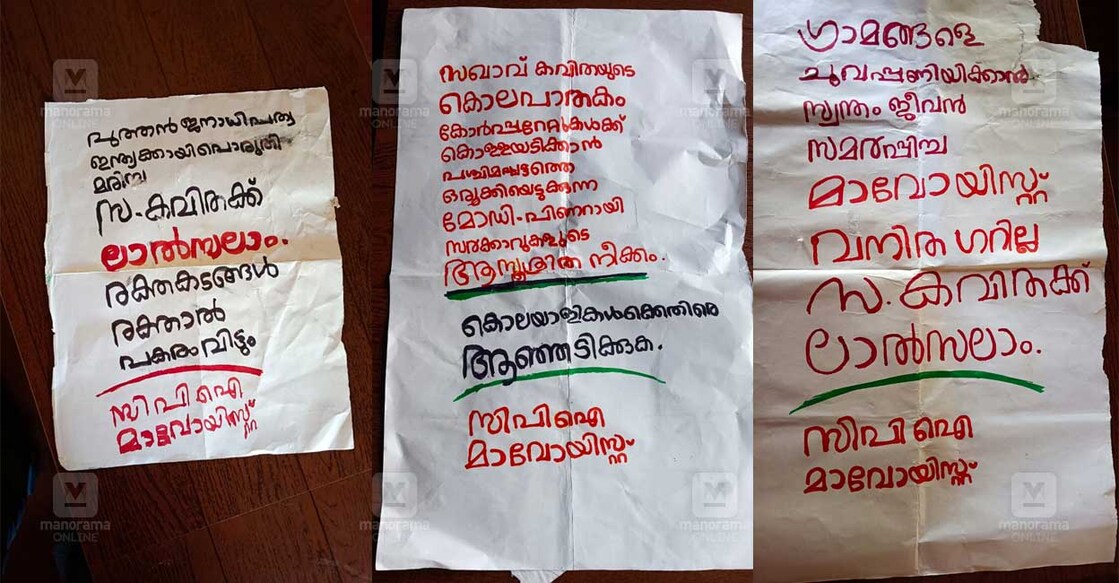 പുത്തൻ ജനാധിപത്യ
ഇന്ത്യക്കായിപൊരുതി
മരിച്ച
സ. കവിതക്ക്
ലാൽസലാം.
രക്തകടങ്ങൾ
രക്താൽ
പകരം വീട്ടും
സി പി ഐ
മാവോയിസ്റ്റ്
സഖാവ് കവിതയുടെ
കൊലപാതകം
കോർപ്പറേറ്റുകൾക്ക്
കൊള്ളയടിക്കാൻ
പശ്ചിമഘട്ടത്തെ
ഒരുക്കിയെടുക്കുന്ന
മോഡി-പിണറായി
സർക്കാറുകളുടെ
ആസൂത്രിത നീക്കം.
കൊലയാളികൾക്കെതിരെ
ആഞ്ഞടിക്കുക.
സിപിഐ
മാവോയിസ്റ്റ്
ഗ്രാമങ്ങളെ
ചുവപ്പണിയിക്കാൻ
സ്വന്തം ജീവൻ
സമർപ്പിച്ച
മാവോയിസ്റ്റ്
വനിത ഗറില്ല
സ. കവിതക്ക്
ലാൽസലാം.
സിപി ഐ
മാവോയിസ്റ്റ്
manorama
ONLINE
manorama
ONLINE
manorama
ONLINE
manorama
ONLINE
manorama
ONLINE
manorama
ONLINE
manorama
ONLINE
manorama
ONLINE